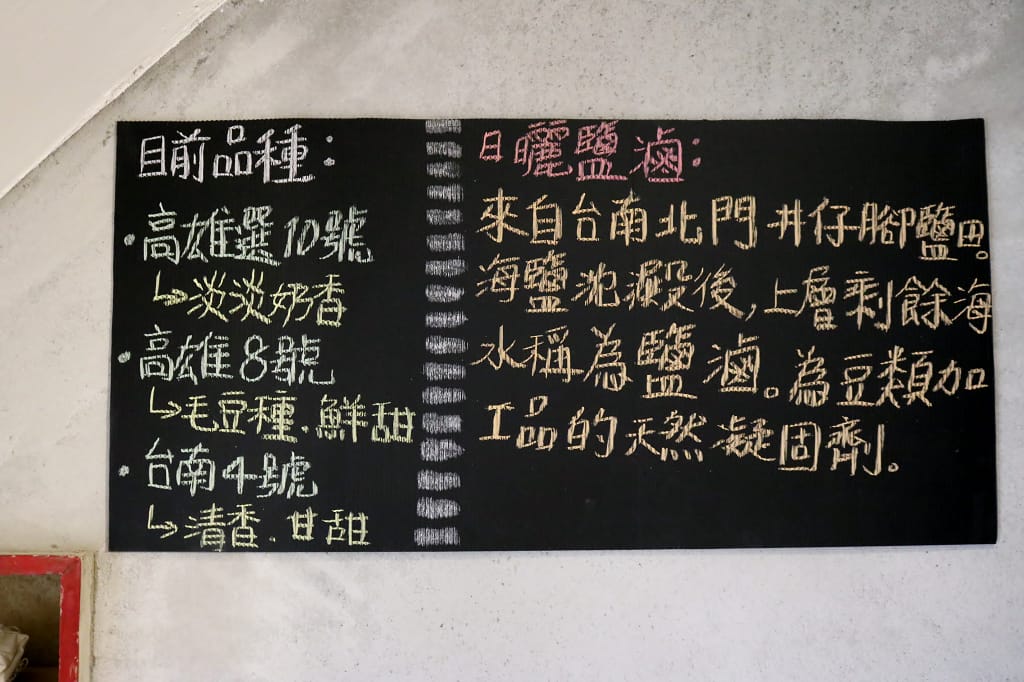 目前品種：
・高雄選10號
↳淡淡奶香
・高雄8號
↳毛豆種.鮮甜
・台南4號
↳清香.甘甜
日曬鹽滷：
來自台南北門井仔腳鹽田。
海鹽沈澱後,上層剩餘海
水稱為鹽滷。為豆類加
工品的天然凝固劑。